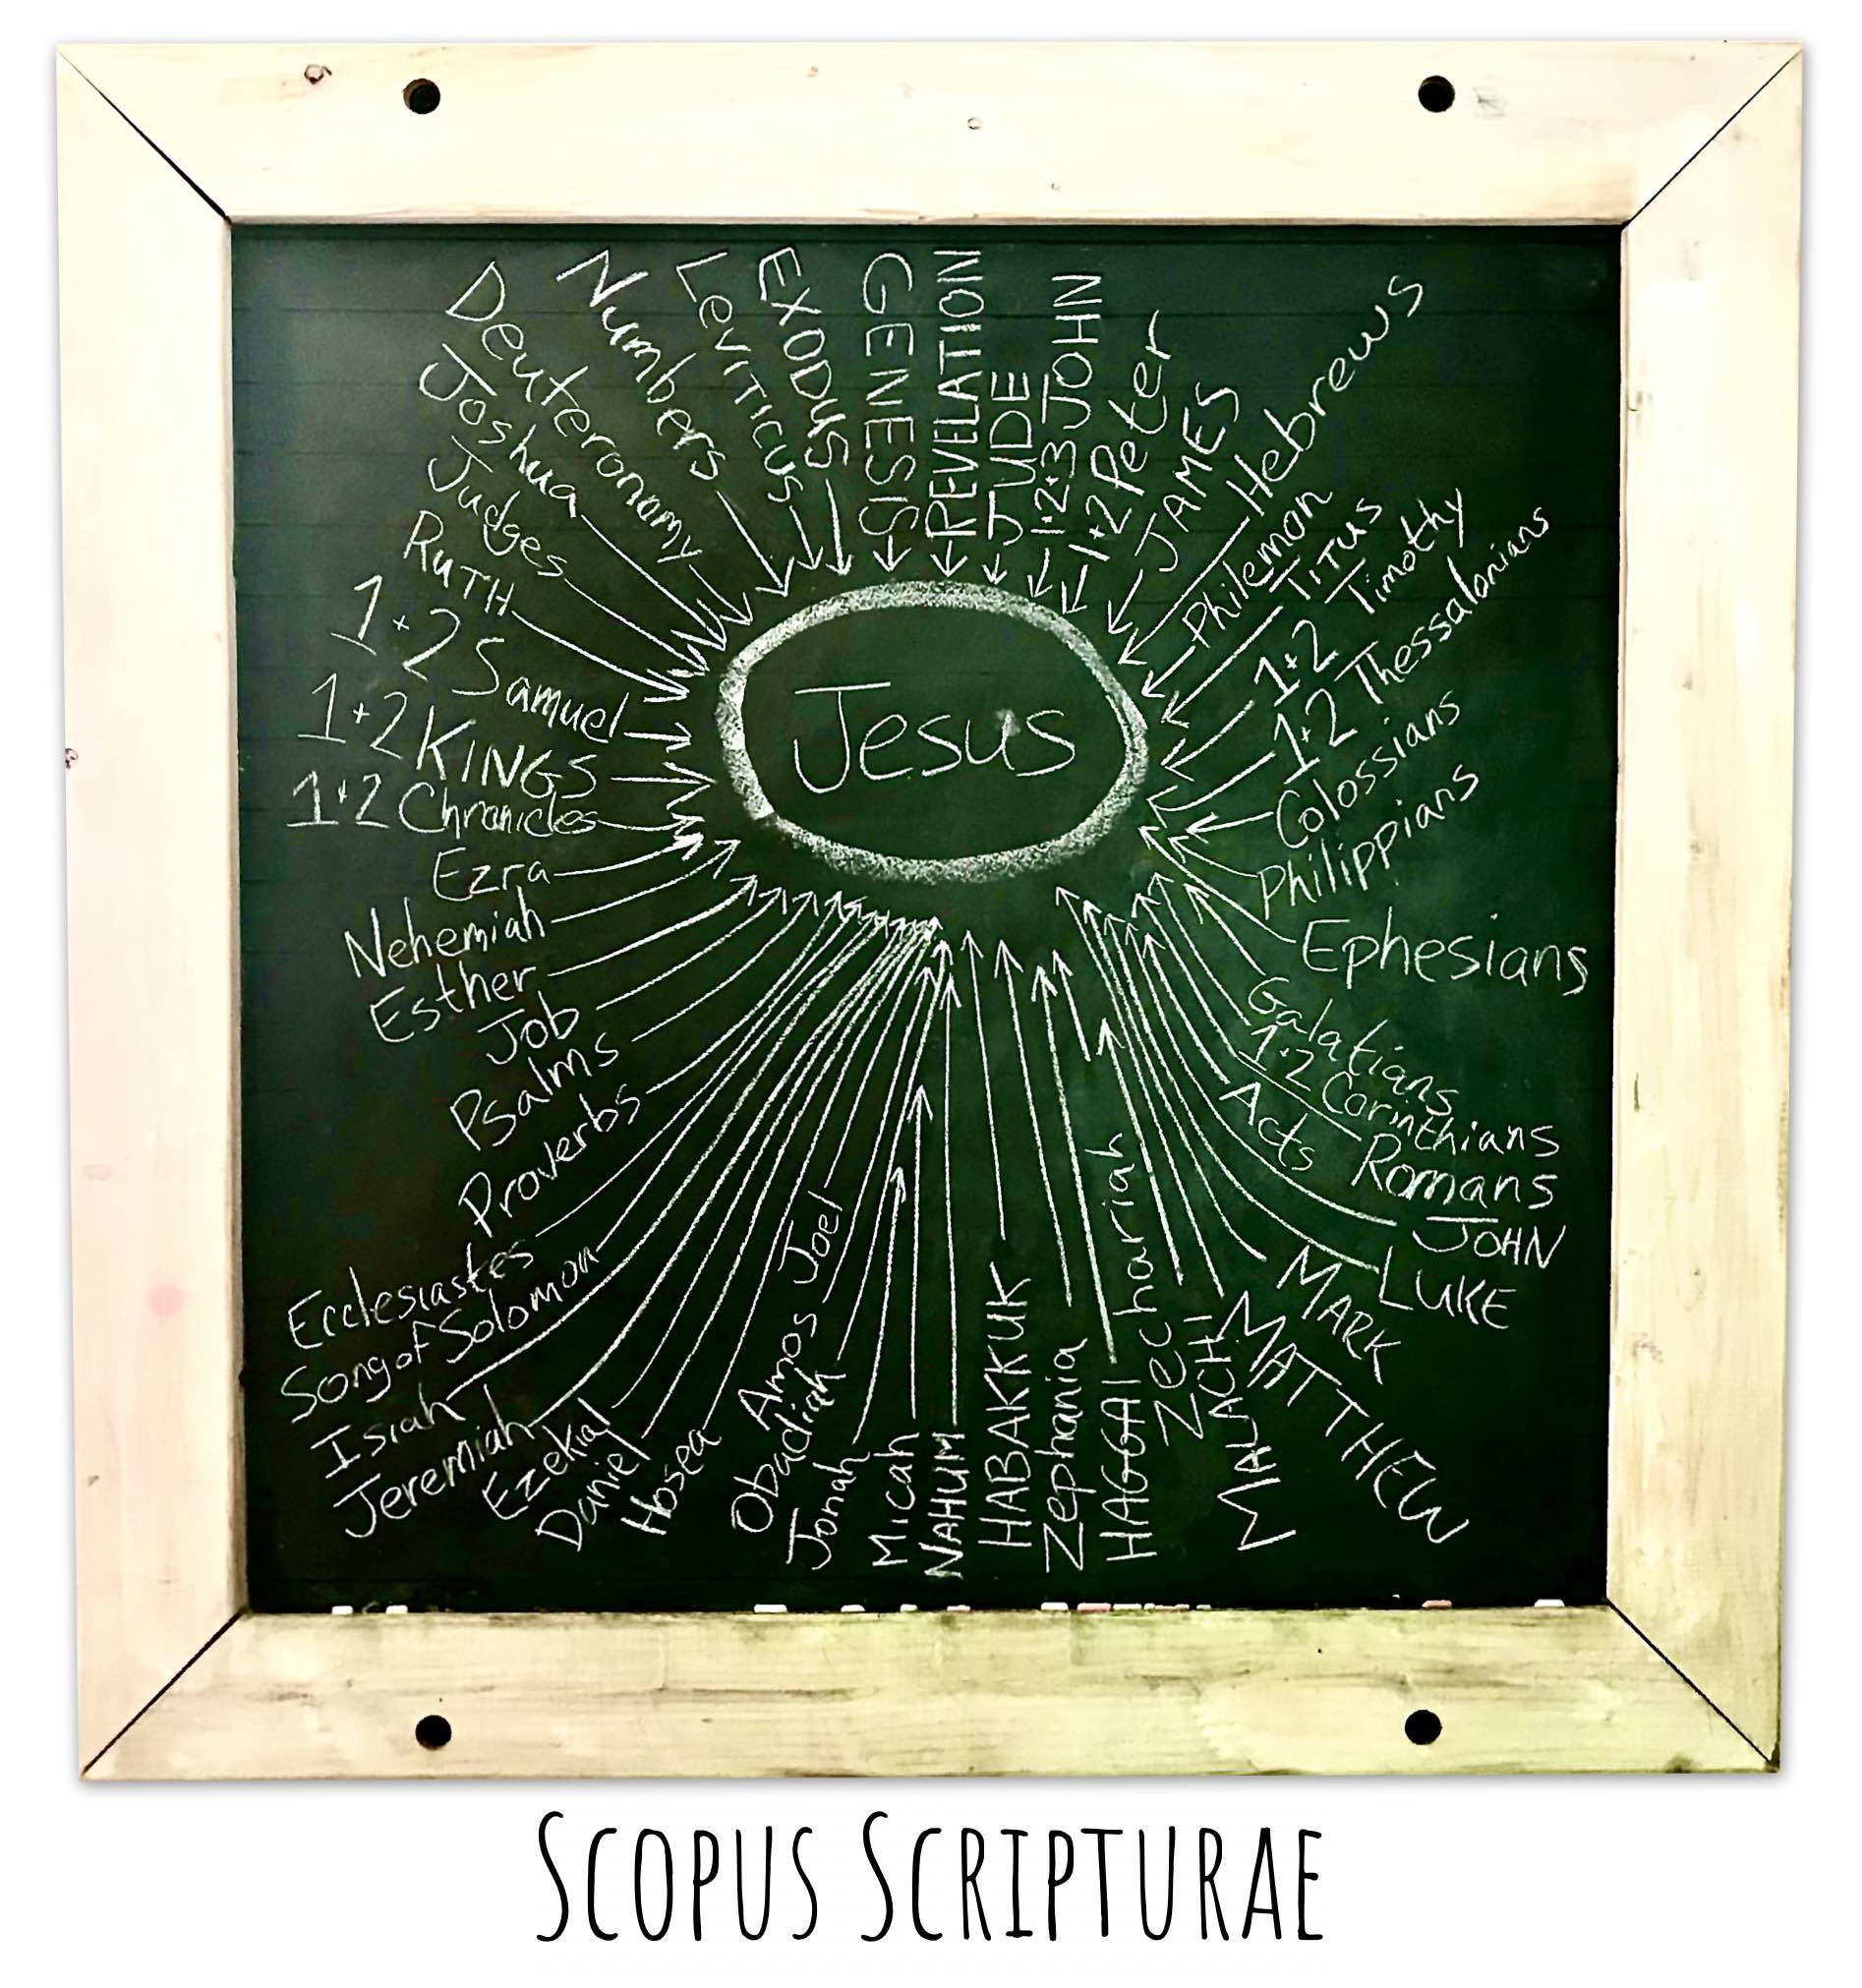 Jesus
GENESIS
EXODUS
LEVITICUS
Numbers
Deuteronomy
Joshua
Judges
RUTH
1+2 Samuel
1+2 KINGS
1+2 Chronicles
Ezra
Nehemiah
Esther
Job
Psalms
Proverbs
Ecclesiastes
Song of Solomon
Isiah
Jeremiah
Ezekial
Daniel
Hosea
Joel
Amos
Obadiah
Jonah
Micah
NAHUM
HABAKKUK
Zephania
HAGGAI
Zechariah
MALACHI
MATTHEW
MARK
LUKE
JOHN
Acts
Romans
1+2 Corinthians
Galatians
Ephesians
Philippians
Colossians
1+2 Thessalonians
1+2 Timothy
TITUS
Philemon
Hebrews
JAMES
1+2 Peter
1+2+3 JOHN
JUDE
REVELATION
SCOPUS SCRIPTURAE